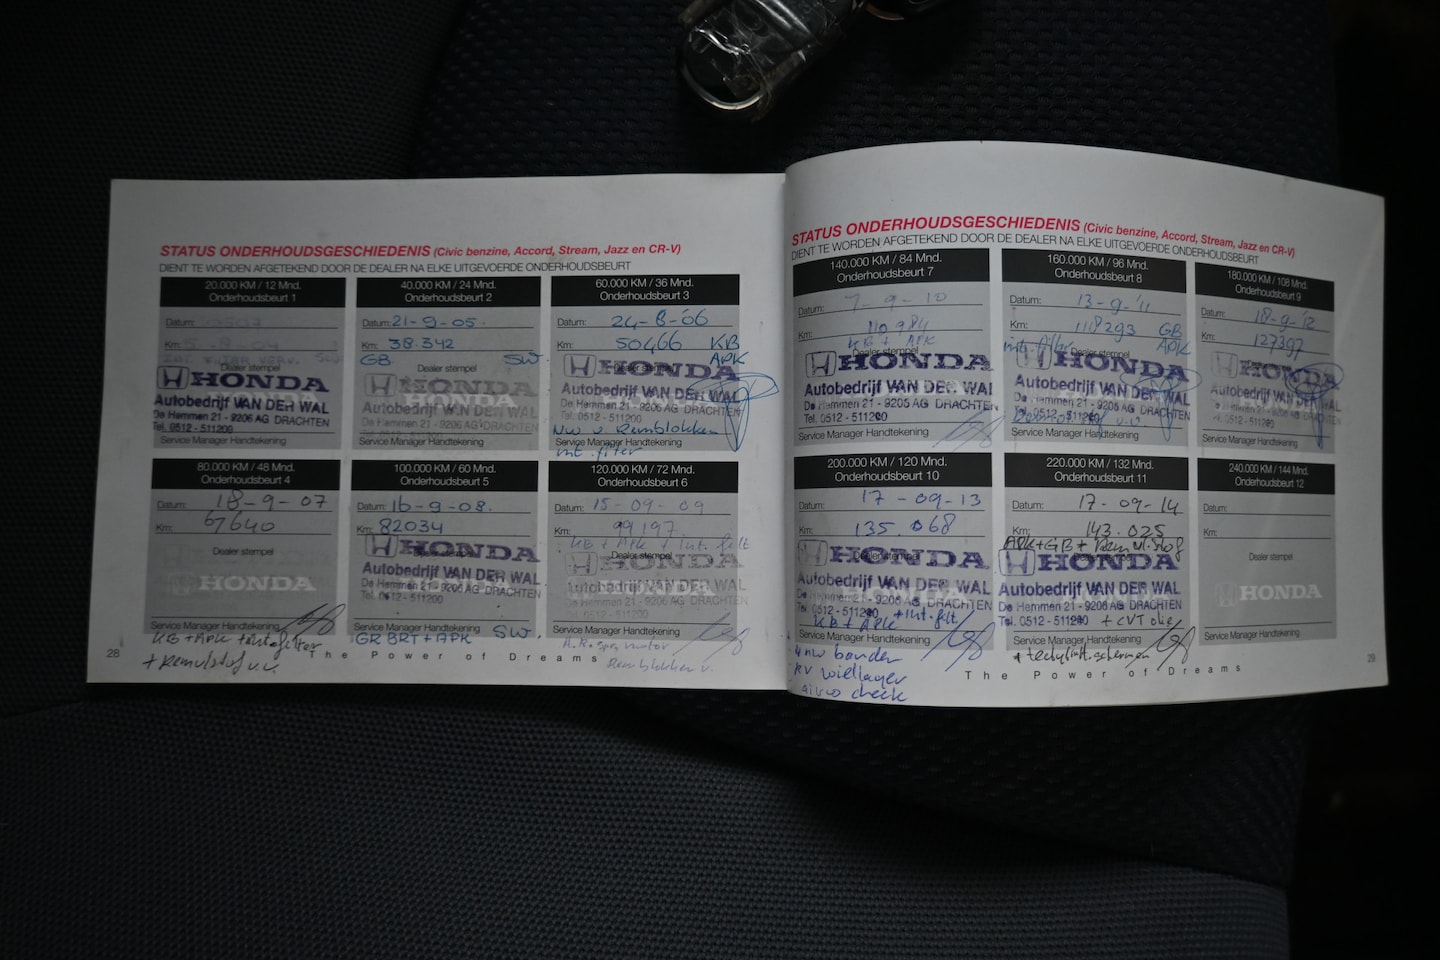 STATUS ONDERHOUDSGESCHIEDENIS (Civic benzine, Accord, Stream, Jazz en CR-V)
DIENT TE WORDEN AFGETEKEND DOOR DE DEALER NA ELKE UITGEVOERDE ONDERHOUDSBEURT
20.000 KM / 12 Mnd.
Onderhoudsbeurt 1
Datum:
Km:
Dealer stempel
HONDA
Autobedrijf VAN DER WAL
De Hemmen 21 - 9206 AG DRACHTEN
Tel. 0512 - 511200
Service Manager Handtekening
40.000 KM / 24 Mnd.
Onderhoudsbeurt 2
Datum: 21-9-05.
Km: 38.342
GB SW.
Dealer stempel
HONDA
Autobedrijf VAN DER WAL
De Hemmen 21 - 9206 AG DRACHTEN
Tel. 0512 - 511200
Service Manager Handtekening
60.000 KM / 36 Mnd.
Onderhoudsbeurt 3
Datum: 24-8-06
Km: 50466 KB
APK
Dealer stempel
HONDA
Autobedrijf VAN DER WAL
De Hemmen 21 - 9206 AG DRACHTEN
Tel. 0512 - 511200
NW v. Remblokken
Service Manager Handtekening
int. filter
80.000 KM / 48 Mnd.
Onderhoudsbeurt 4
Datum: 18-9-07
Km: 67640
Dealer stempel
HONDA
Service Manager Handtekening
KB + APK + intafilter
+ Remvlstof v.v.
100.000 KM / 60 Mnd.
Onderhoudsbeurt 5
Datum: 16-9-08.
Km: 82034
Dealer stempel
HONDA
Autobedrijf VAN DER WAL
De Hemmen 21 - 9206 AG DRACHTEN
Tel. 0512 - 511200
Service Manager Handtekening
GR BRT + APK SW.
120.000 KM / 72 Mnd.
Onderhoudsbeurt 6
Datum: 15-09-09
Km: 99197
KB + APK + int. filt
Dealer stempel
HONDA
Autobedrijf VAN DER WAL
De Hemmen 21 - 9206 AG DRACHTEN
Tel. 0512 - 511200
Service Manager Handtekening
Remblokken v.
28
The Power of Dreams
STATUS ONDERHOUDSGESCHIEDENIS (Civic benzine, Accord, Stream, Jazz en CR-V)
DIENT TE WORDEN AFGETEKEND DOOR DE DEALER NA ELKE UITGEVOERDE ONDERHOUDSBEURT
140.000 KM / 84 Mnd.
Onderhoudsbeurt 7
Datum: 7-9-10
Km: 110984
KB + APK
Dealer stempel
HONDA
Autobedrijf VAN DER WAL
De Hemmen 21 - 9206 AG DRACHTEN
Tel. 0512 - 511200
Service Manager Handtekening
160.000 KM / 96 Mnd.
Onderhoudsbeurt 8
Datum: 13-9-'11
Km: 118293 GB
int. filter APK
Dealer stempel
HONDA
Autobedrijf VAN DER WAL
De Hemmen 21 - 9206 AG DRACHTEN
Tel. 0512 - 511200
Service Manager Handtekening
180.000 KM / 108 Mnd.
Onderhoudsbeurt 9
Datum: 18-9-'12
Km: 127397
Dealer stempel
HONDA
Autobedrijf VAN DER WAL
De Hemmen 21 - 9206 AG DRACHTEN
Tel. 0512 - 511200
Service Manager Handtekening
200.000 KM / 120 Mnd.
Onderhoudsbeurt 10
Datum: 17-09-13
Km: 135.068
Dealer stempel
HONDA
Autobedrijf VAN DER WAL
De Hemmen 21 - 9206 AG DRACHTEN
Tel. 0512 - 511200 + int. filt
KB + APK
Service Manager Handtekening
+ 4 nw banden
RV wiellager
airco check
220.000 KM / 132 Mnd.
Onderhoudsbeurt 11
Datum: 17-09-14
Km: 143.025
APK + GB + Remvlstof
Dealer stempel
HONDA
Autobedrijf VAN DER WAL
De Hemmen 21 - 9206 AG DRACHTEN
Tel. 0512 - 511200 + CVT olie
Service Manager Handtekening
240.000 KM / 144 Mnd.
Onderhoudsbeurt 12
Datum:
Km:
Dealer stempel
HONDA
Service Manager Handtekening
The Power of Dreams
29